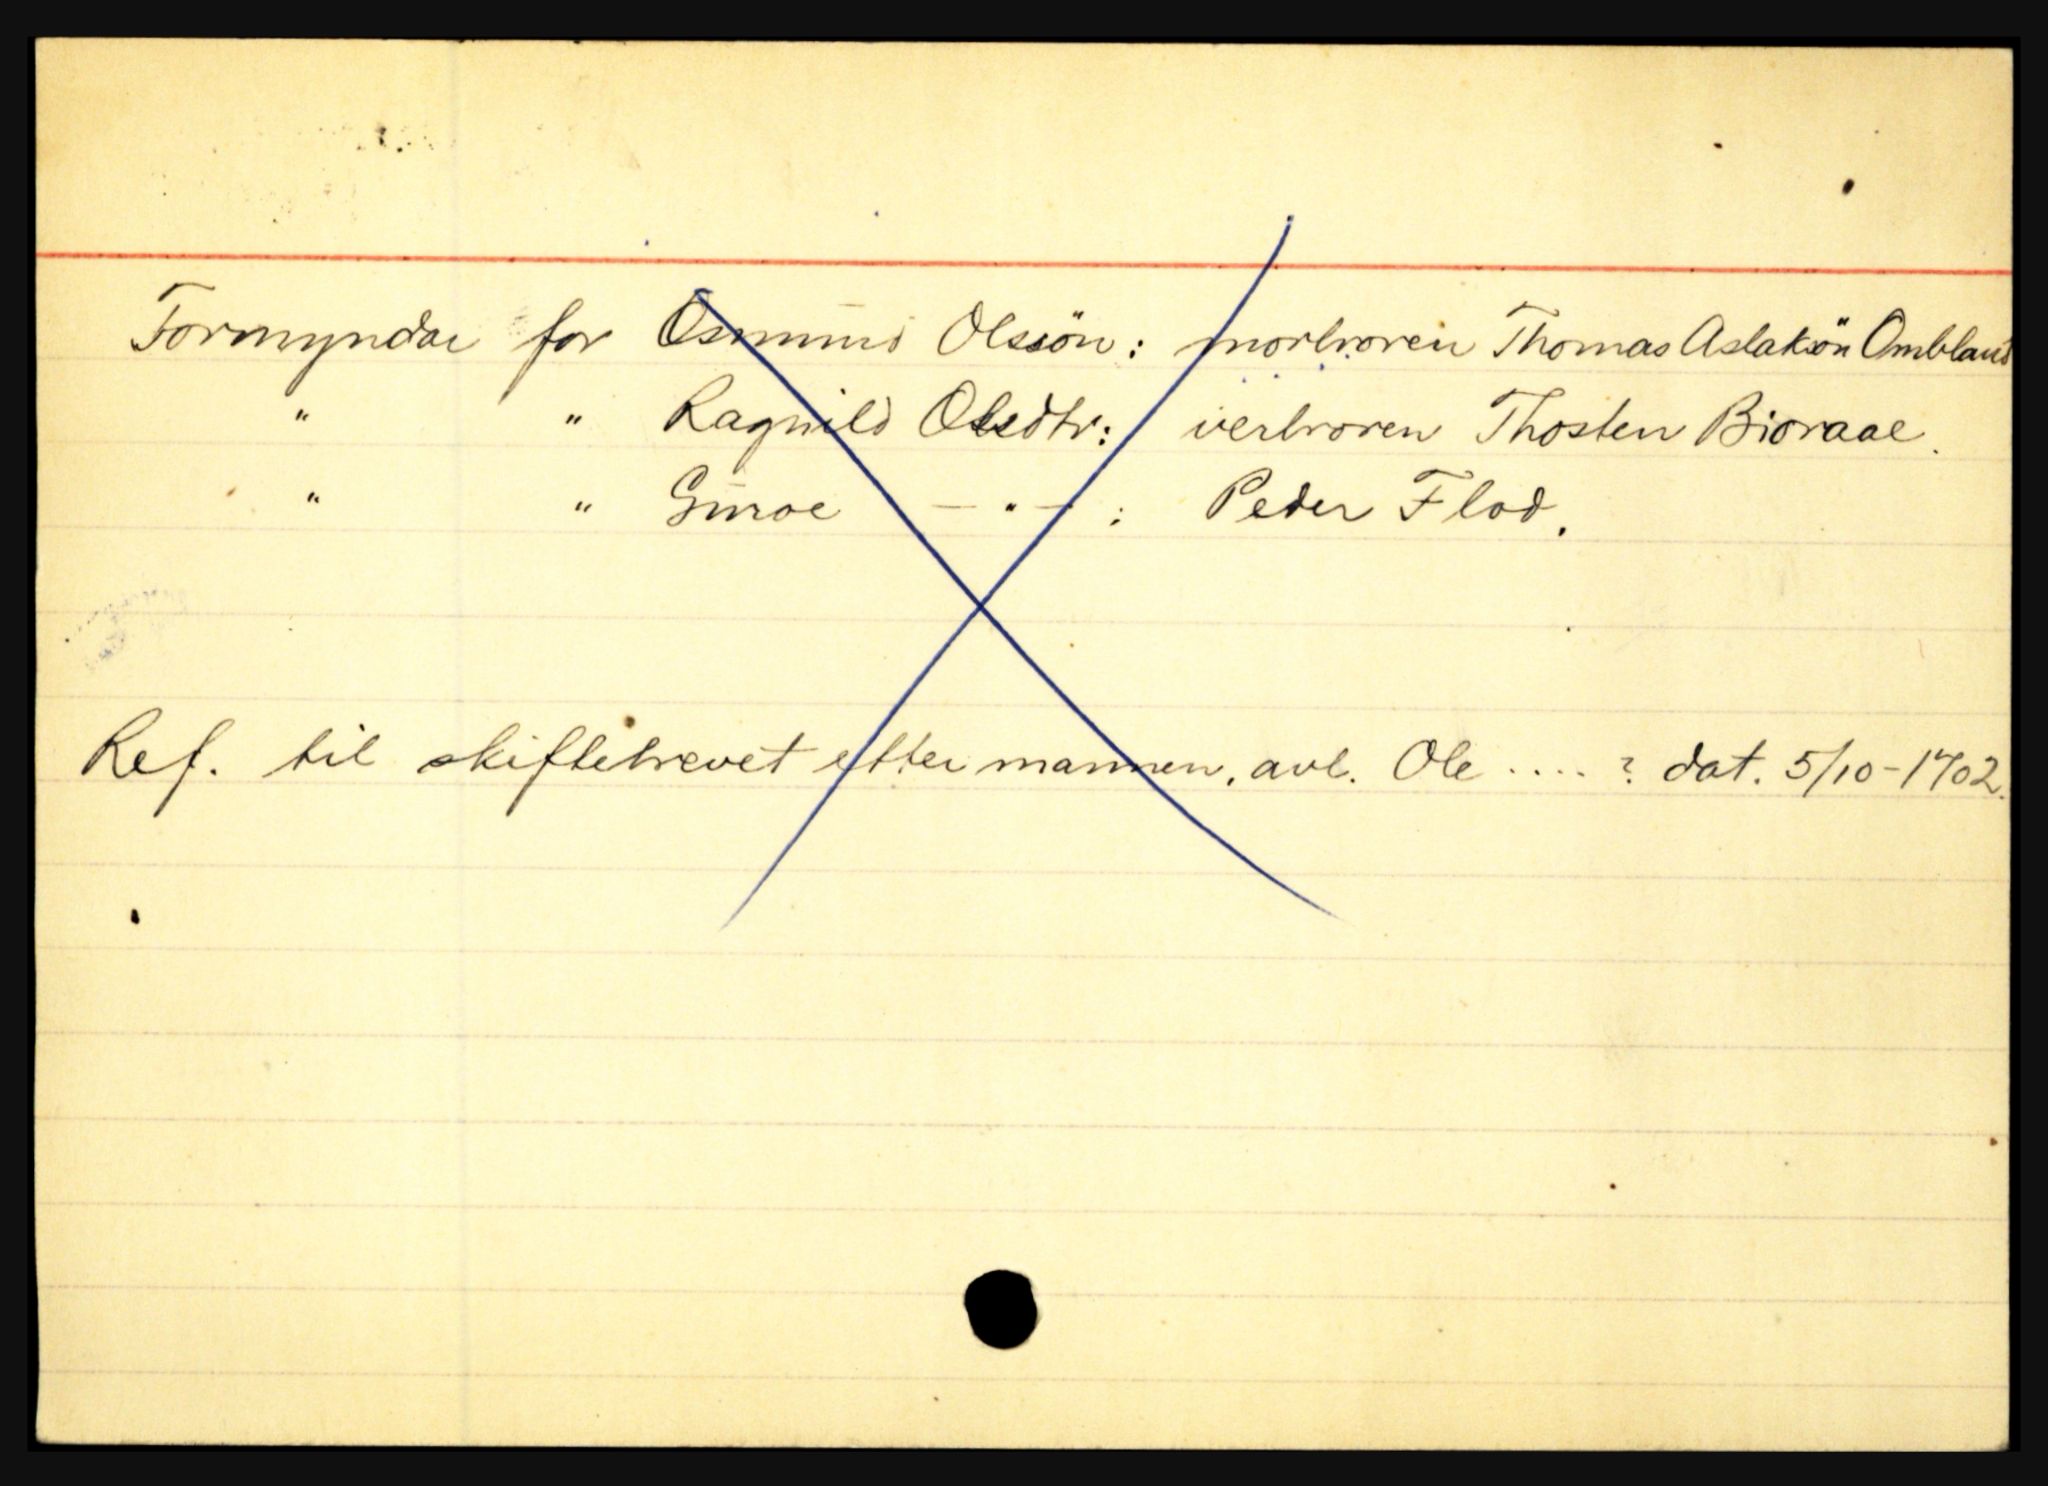 Formyndar for Osmund Olssön: morbroren Thomas Aslaksön Ombland
" " Ragnild Olsdtr: verbroren Thosten Bioraae.
" " Guroe — " — : Peder Flod.
Ref. til skiftebrevet etter mannen, avl. Ole ....? dat. 5/10-1702.